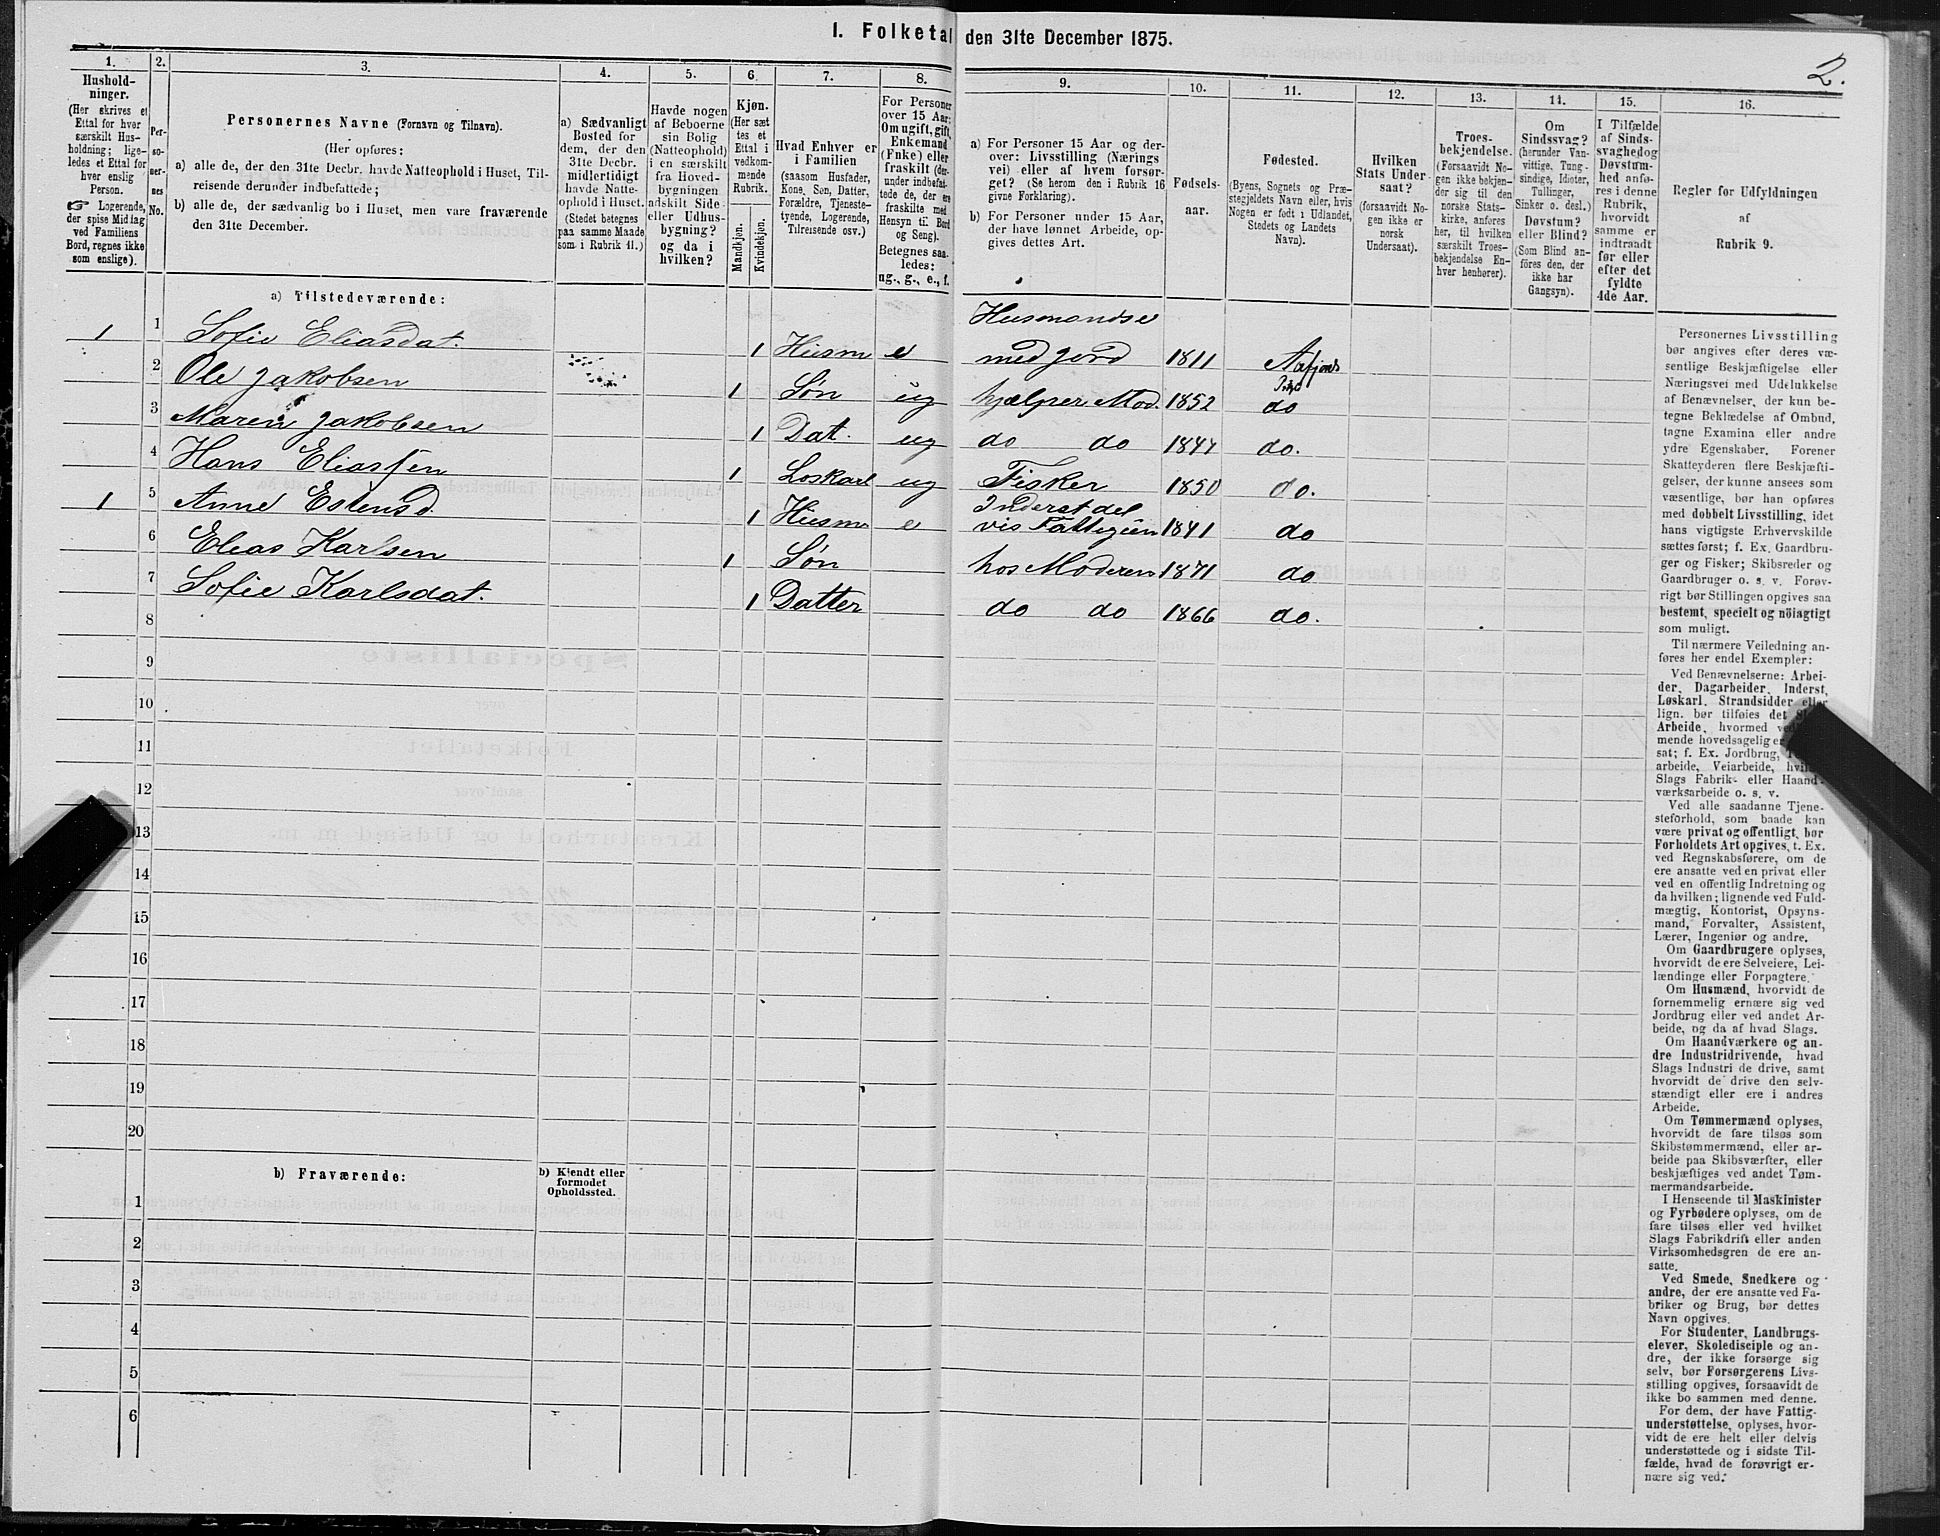 I. Folketal den 31te December 1875.
2.
1.
Hushold-
ninger.
(Her skrives et
Ettal for hver
særskilt Hus-
holdning; lige-
ledes et Ettal for
hver enslig
Person.
☞ Logerende,
der spise Middag
ved Familiens
Bord, regnes ikke
som enslige).
2.
Per-
so-
ner-
nes
No.
3.
Personernes Navne (Fornavn og Tilnavn).
(Her opføres:
a) alle de, der den 31te Decbr. havde Natteophold i Huset, Til-
reisende derunder indbefattede;
b) alle de, der sædvanlig bo i Huset, men vare fraværende
den 31te December.
4.
a) Sædvanligt
Bosted for
dem, der den
31te Decbr.
midlertidigt
havde Natte-
ophold i Huset.
(Stedet betegnes
paa samme Maade
som i Rubrik 11.)
5.
Havde nogen
af Beboerne
sin Bolig
(Natteophold)
i en særskilt
fra Hoved-
bygningen
adskilt Side-
eller Udhus-
bygning?
og da i
hvilken?
6.
Kjøn.
(Her sæt
tes et
Ettal i
vedkom-
mende
Rubrik.
Mandkjøn.
Kvindekjøn.
7.
Hvad Enhver er
i Familien
(saasom Husfader,
Kone, Søn, Datter,
Forældre, Tjeneste-
tyende, Logerende,
Tilreisende osv.)
8.
For Personer
over 15 Aar:
Om ugift, gift,
Enkemand
(Enke) eller
fraskilt (der-
under indbefat-
tede de, der ere
fraskilte med
Hensyn til Bord
og Seng).
Betegnes saa-
ledes:
ug., g., e., f.
9.
a) For Personer 15 Aar og der-
over: Livsstilling (Nærings
vei) eller af hvem forsør-
get? (Se herom den i Rubrik 16
givne Forklaring).
b) For Personer under 15 Aar,
der have lønnet Arbeide, op-
gives dettes Art.
10.
Fødsels-
aar.
11.
Fødested.
(Byens, Sognets og Præ-
stegjeldets Navn eller, hvis
Nogen er født i Udlandet,
Stedets og Landets
Navn).
12.
Hvilken
Stats Under
saat?
(forsaavidt No-
gen ikke er
norsk
Undersaat).
13.
Troes-
bekjendelse.
(Forsaavidt No-
gen ikke bekjen-
der sig til den
norske Stats-
kirke, anføres
her, til hvilken
særskilt Troes-
bekjendelse En-
hver henhører).
14.
Om
Sindssvag?
(herunder Van-
vittige, Tung-
sindige, Idioter,
Tullinger,
Sinker o. desl.)
Døvstum?
eller Blind?
(Som Blind an-
føres den, der
ikke har
Gangsyn).
15.
I Tilfælde
af Sinds-
svaghed og
Døvstum-
hed anfø-
res i denne
Rubrik,
hvorvidt
samme er
indtraadt
før eller
efter det
fyldte
4de Aar.
16.
Regler for Udfyldningen
af
Rubrik 9.
a) Tilstedeværende:
1 1 Sofie Eliasdat. 1 Husm e Husmandse med jord 1811 Aafjord
2 Ole Jakobsen 1 Søn ug hjælper Mod. 1852 do
3 Maren Jakobsen 1 Dat. ug do do 1847 do.
4 Hans Eliassen 1 Loskarl ug Fisker 1850 do.
1 5 Anne Estensd. 1 Husm e Inderst del vis Fattigun 1841 do
6 Elias Karlsen 1 Søn hos Moderen 1871 do
7 Sofie Karlsdat. 1 Datter do do 1866 do.
8
9
10
11
12
13
14
15
16
17
18
19
20
b) Fraværende:
b) Kjendt eller
formodet
Opholdssted.
1
2
3
4
5
6
Personernes Livsstilling
bør angives efter deres væ-
sentlige Beskjæftigelse eller
Næringsvei med Udelukkelse
af Benævnelser, der kun be-
tegne Beklædelse af Ombud,
tagne Examina eller andre
ydre Egenskaber. Forener
Skatteyderen flere Beskjæfti-
gelser, der kunne ansees som
væsentlige, bør han opføres
med dobbelt Livsstilling, idet
hans vigtigste Erhvervskilde
sættes først; f. Ex. Gaardbru-
ger og Fisker; Skibsreder og
Gaardbruger o. s. v. Forøv-
rigt bør Stillingen opgives saa
bestemt, specielt og nöiagtigt
som muligt.
Til nærmere Veiledning an-
føres her endel Exempler:
Ved Benævnelserne: Arbei-
der, Dagarbeider, Inderst,
Løskarl, Strandsidder eller
lign. bør tilføies det
Arbeide, hvormed
mende hovedsagelig er
sat; f. Ex. Jordbrug,
arbeide, Veiarbeide,
Slags Fabrik- eller Haand-
værksarbeide o. s. v.
Ved alle saadanne Tjene-
steforhold, som baade kan
være privat og offentligt, bør
Forholdets Art opgives, t. Ex.
ved Regnskabsførere, om de
ere ansatte ved en privat eller
ved en offentlig Indretning og
da hvilken; lignende ved Fuld-
mægtig, Kontorist, Opsyns-
mand, Forvalter, Assistent,
Lærer, Ingeniør og andre.
Om Gaardbrugere oplyses,
hvorvidt de ere Selveiere, Lei-
lændinge eller Forpagtere.
Om Husmænd, hvorvidt de
fornemmelig ernære sig ved
Jordbrug eller ved andet Ar-
beide, og da af hvad Slags.
Om Haandværkere og an-
dre Industridrivende, hvad
Slags Industri de drive, samt
hvorvidt de drive den selv-
stændigt eller ere i andres
Arbeide.
Om Tømmermænd oplyses,
hvorvidt de fare tilsøs som
Skibstømmermænd, eller ar-
beide paa Skibsværfter, eller
beskjæftiges ved andet Tøm-
mermandsarbeide.
I Henseende til Maskinister
og Fyrbødere oplyses, om de
fare tilsøs eller ved hvilket
Slags Fabrikdrift eller anden
Virksomhedsgren de ere an-
satte.
Ved Smede, Snedkere og
andre, der ere ansatte ved Fa-
briker og Brug, bør dettes
Navn opgives.
For Studenter, Landbrugs-
elever, Skoledisciple og an-
dre, der ikke forsørge sig
selv, bør Forsørgerens Livs-
stilling opgives, forsaavidt de
ikke bo sammen med denne.
For dem, der have Fattig-
understøttelse, oplyses, hvor-
vidt de ere helt eller delvis
understøttede og i sidste Til-
fælde, hvad de forøvrigt er-
nære sig ved.